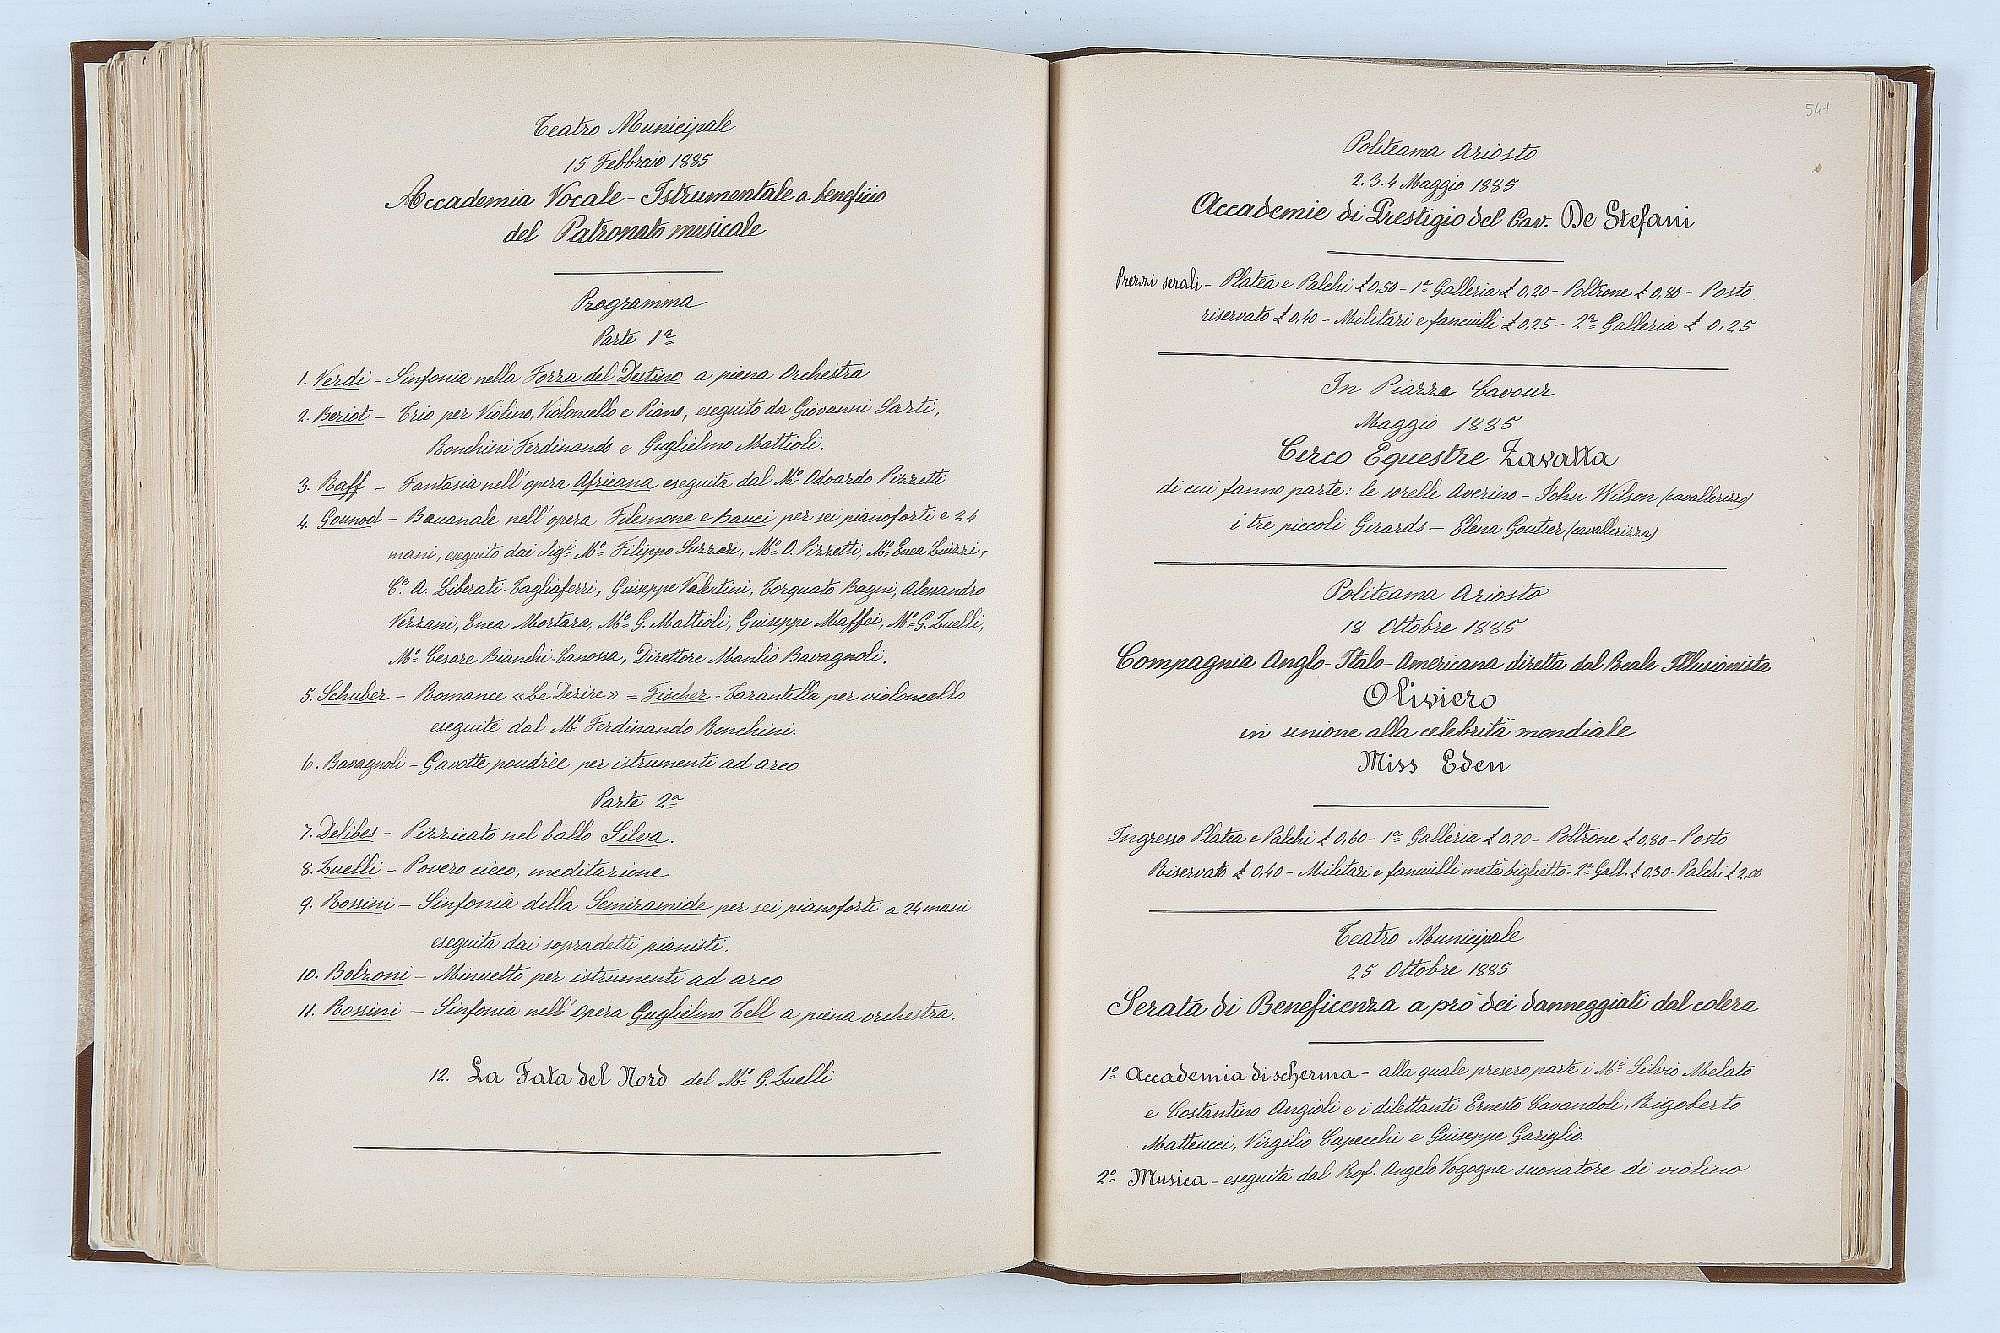 Teatro Municipale
15 Febbraio 1885
Accademia Vocale - Istrumentale a beneficio
del Patronato musicale
Programma
Parte 1ª
1. Verdi - Sinfonia nella Forza del Destino a piena Orchestra
2. Beriot - Trio per Violino, Violoncello e Piano, eseguito da Giovanni Sarti,
Bonchini Ferdinando e Guglielmo Mattioli.
3. Raff - Fantasia nell'opera Africana eseguita dal Mº Odoardo Pizzetti
4. Gounod - Baccanale nell'opera Filemone e Bauci per sei pianoforti e 24
mani, eseguito dai Sigi Mº Filippo, Mº O. Pizzetti, Mº Enea,
Cº A. Liberati-Tagliaferri, Giuseppe Valentini, Torquato Bagni, Alessandro
Vezzani, Enea Mortara, Mº G. Mattioli, Giuseppe Maffei, Mº G. Zuelli,
Mº Cesare Bianchi Canossa, Direttore Manlio Bavagnoli.
5. Schuber - Romance «Le Desire» = Fischer - Tarantella per violoncello
eseguite dal Mº Ferdinando Bonchini.
6. Bavagnoli - Gavotte poudrèe per istrumenti ad arco
Parte 2ª
7. Delibes - Pizzicato nel ballo Silva.
8. Zuelli - Povero cieco, meditazione
9. Rossini - Sinfonia della Semiramide per sei pianoforti a 24 mani
eseguita dai sopradetti pianisti.
10. Bolzoni - Minuetto per istrumenti ad arco
11. Rossini - Sinfonia nell'opera Guglielmo Tell a piena orchestra.
12. La Fata del Nord del Mº G. Zuelli
541
Politeama Ariosto
2. 3. 4 Maggio 1885
Accademie di Prestigio del Cav. De Stefani
Prezzi serali - Platea e Palchi £ 0,50 - 1ª Galleria £ 0,20 - Poltrone £ 0,80 - Posto
riservato £ 0,40 - Militari e fanciulli £ 0,25 - 2ª Galleria £ 0,25
In Piazza Cavour
Maggio 1885
Circo Equestre Zavatta
di cui fanno parte: le sorelle Averino - John Wilson (cavallerizzo)
i tre piccoli Girards - Elena Goutier (cavallerizza)
Politeama Ariosto
18 Ottobre 1885
Compagnia Anglo-Italo-Americana diretta dal Reale Illusionista
Oliviero
in unione alla celebrità mondiale
Miss Eden
Ingresso Platea e Palchi £ 0,60 - 1ª Galleria £ 0,70 - Poltrone £ 0,80 - Posto
Riservato £ 0,40 - Militari e fanciulli metà biglietto - 2ª Gall. £ 0,30 - Palchi £ 2,00
Teatro Municipale
25 Ottobre 1885
Serata di Beneficenza a prò dei danneggiati dal colera
1º Accademia di scherma - alla quale presero parte i Mi Silvio Melato
e Costantino Angioli e i dilettanti Ernesto Cavandoli, Rigoberto
Matteucci, Virgilio Capecchi e Giuseppe Gariglio.
2º Musica - eseguita dal Prof. Angelo Vogogna suonatore di violino